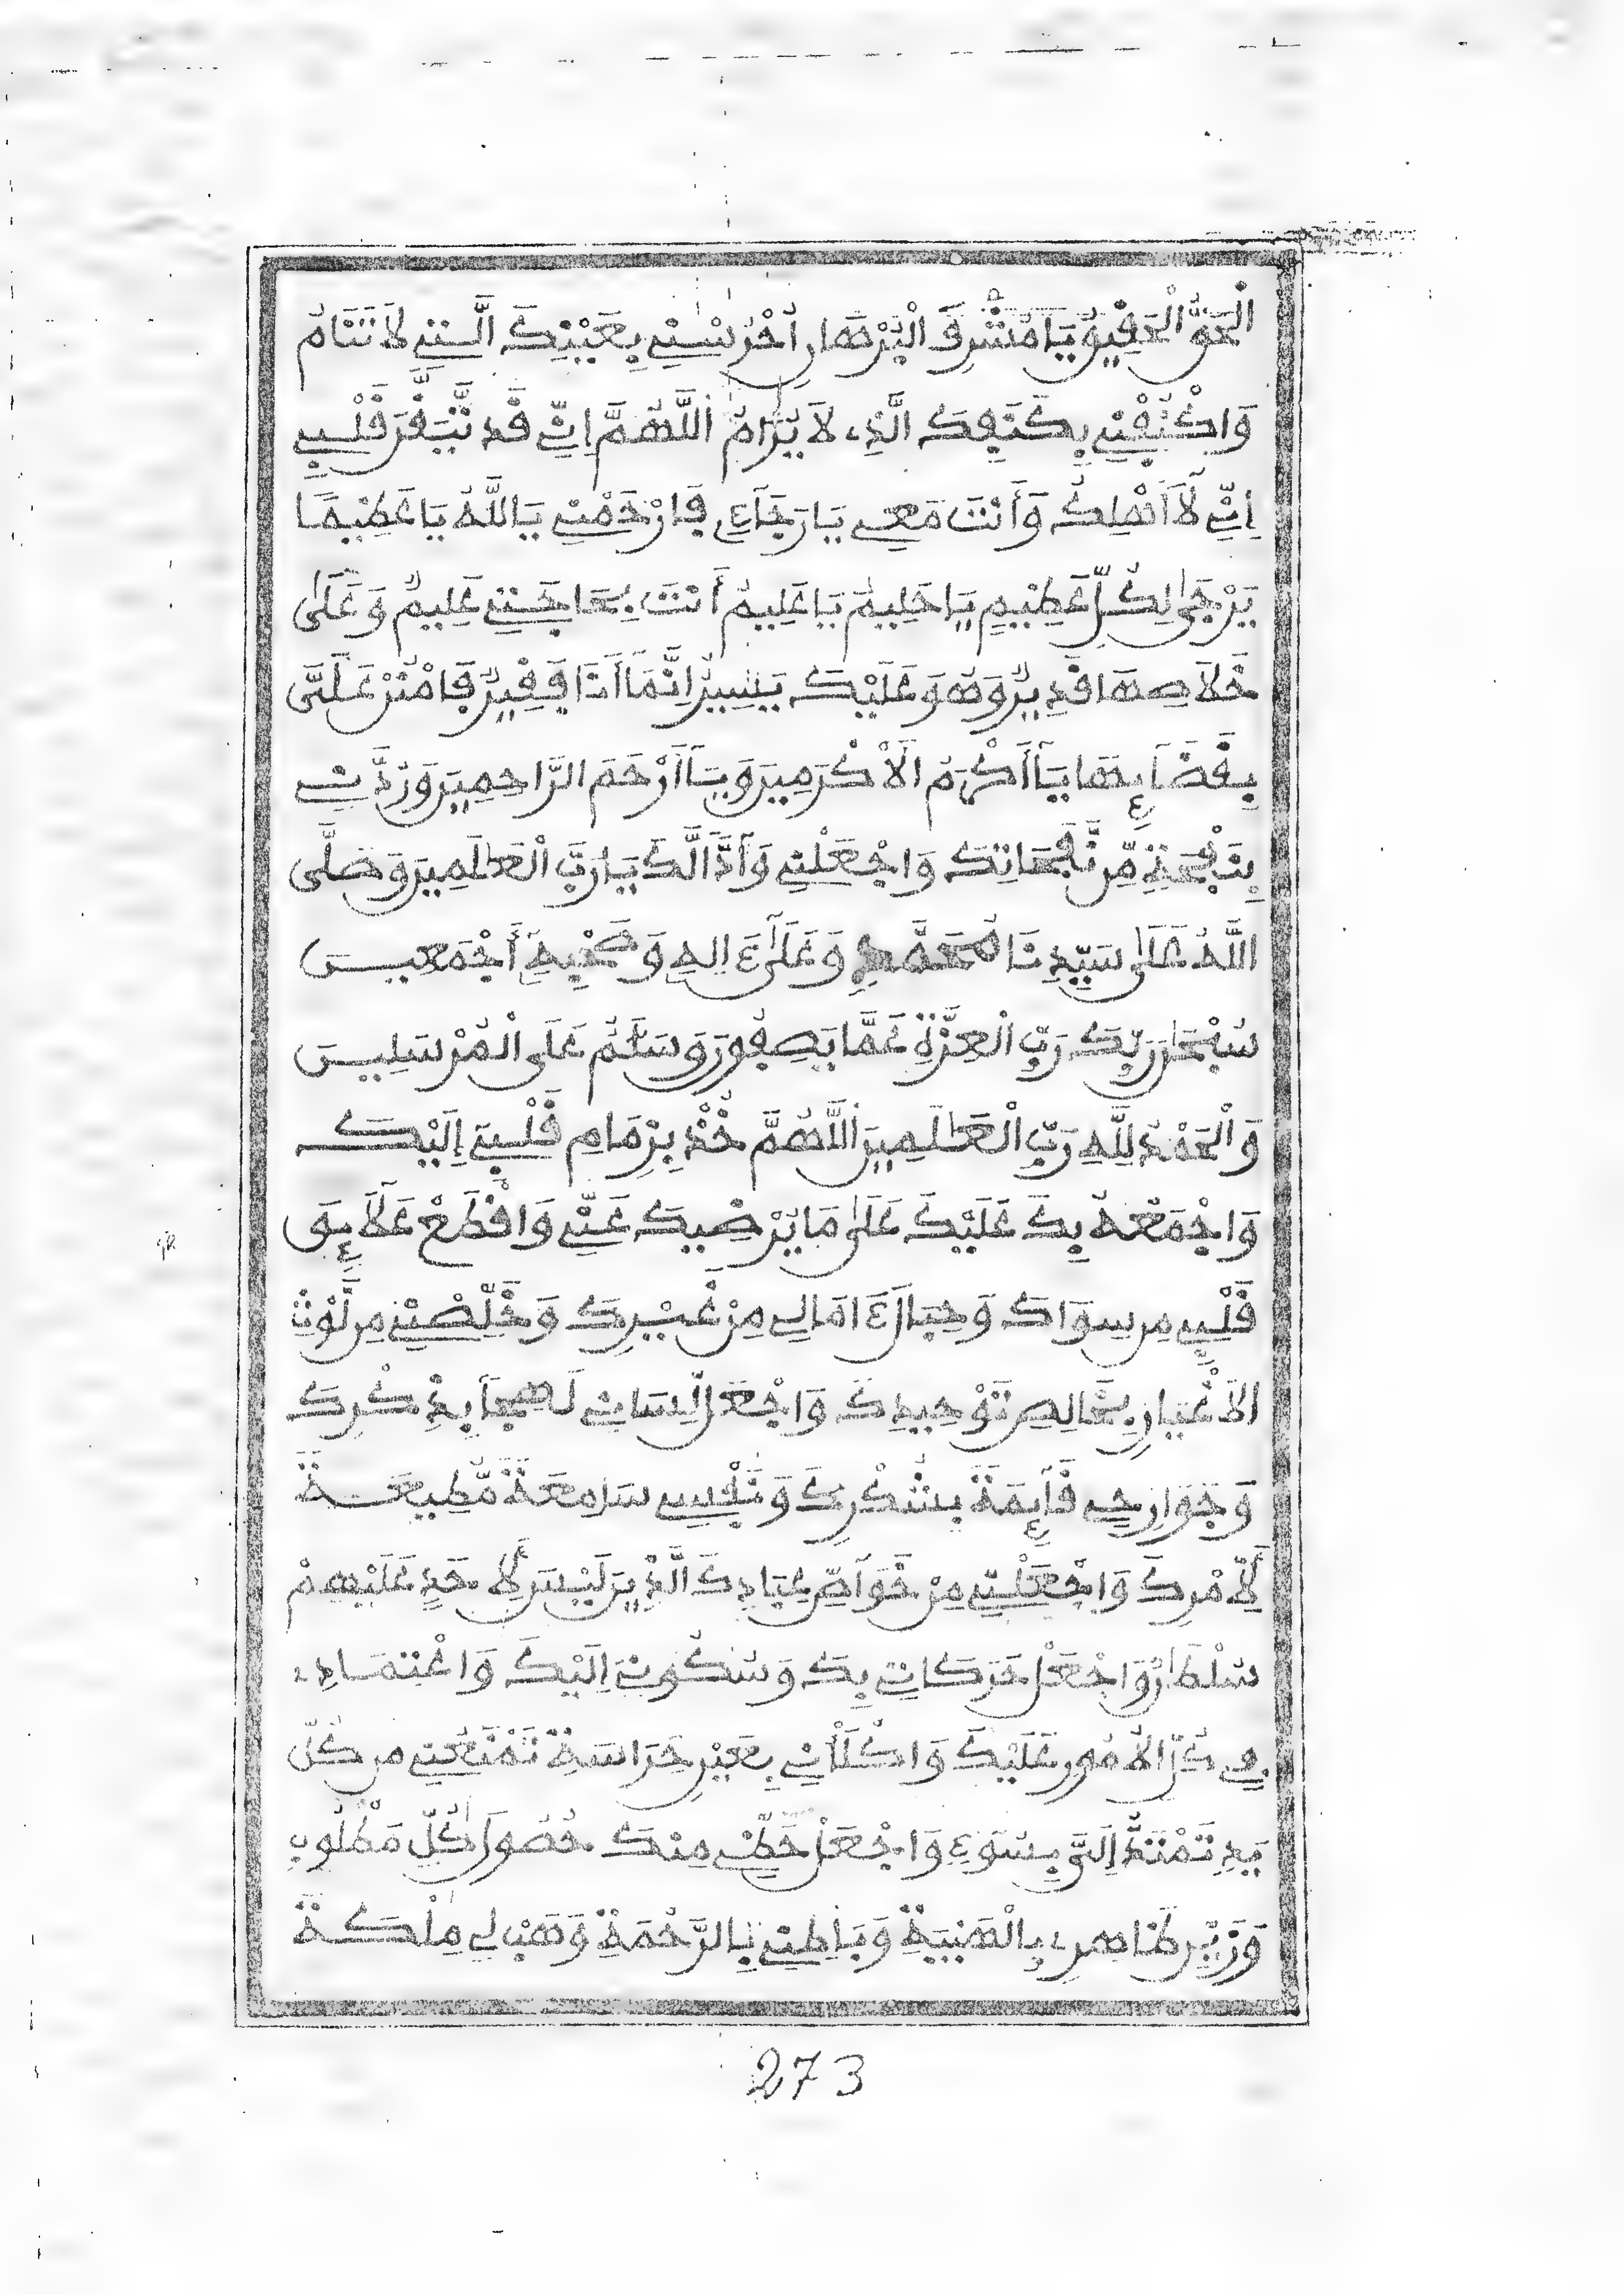 الْحَقُّ الْحَقِيقُ يَا مُشْرِقَ الْبُرْهَانِ اُحْرُسْنِي بِعَيْنِكَ الَّتِي لَا تَنَامُ
وَاكْنُفْنِي بِكَنَفِكَ الَّذِي لَا يُرَامُ اللَّهُمَّ إِنِّي قَدْ تَّيَقَّنَ قَلْبِي
إِنِّي لَا أَهْلِكُ وَأَنْتَ مَعِي يَا رَجَاءِي فَارْحَمْنِي يَا اللَّهُ يَا عَظِيمًا
يُرْجَى لِكُلِّ عَظِيمٍ يَا حَلِيمُ يَا عَلِيمُ أَنْتَ بِحَاجَتِي عَلِيمٌ وَعَلَى
خَلَاصِهَا قَدِيرٌ وَهُوَ عَلَيْكَ يَسِيرٌ إِنَّمَا أَنَا فَقِيرٌ فَامْنُنْ عَلَيَّ
بِقَضَاءِهَا يَا أَكْرَمَ الْأَكْرَمِينَ وَيَا أَرْحَمَ الرَّاحِمِينَ وَرُدَّنِي
بِنَفْحَةٍ مِّن نَّفَحَاتِكَ وَاجْعَلْنِي وَءَدَّالَّكَ يَا رَبَّ الْعَالَمِينَ وَصَلَّى
اللَّهُ عَلَى سَيِّدِنَا مُحَمَّدٍ وَعَلَى ءَالِهِ وَصَحْبِهِ أَجْمَعِينَ
سُبْحَانَ رَبِّكَ رَبِّ الْعِزَّةِ عَمَّا يَصِفُونَ وَسَلَامٌ عَلَى الْمُرْسَلِينَ
وَالْحَمْدُ لِلَّهِ رَبِّ الْعَالَمِينَ اللَّهُمَّ خُذْ بِزِمَامِ قَلْبِي إِلَيْكَ
وَاجْمَعْهُ بِكَ عَلَيْكَ عَلَى مَا يُرْضِيكَ عَنِّي وَاقْطَعْ عَلَاءِقَ
قَلْبِي مِن سِوَاكَ وَحِبَالَ ءَامَالِي مِنْ غَيْرِكَ وَخَلِّصْنِي مِن لَّوْثِ
الْأَغْيَارِ بِخَالِصِ تَوْحِيدِكَ وَاجْعَل لِّسَانِي لَهِجًا بِذِكْرِكَ
وَجَوَارِحِي قَاءِمَةً بِشُكْرِكَ وَنَفْسِي سَامِعَةً مُّطِيعَةً
لِّأَمْرِكَ وَاجْعَلْنِي مِنْ خَوَاصِّ عِبَادِكَ الَّذِينَ لَيْسَ لِأَحَدٍ عَلَيْهِمْ
سُلْطَانٌ وَاجْعَلْ حَرَكَاتِي بِكَ وَسُكُونِي إِلَيْكَ وَاعْتِمَادِي
فِي كُلِّ الْأُمُورِ عَلَيْكَ وَاكْلَأْنِي بِعَيْنِ حَرَاسَةٍ تَمْنَعُنِي مِن كُلِّ
يَدٍ تَمْتَدُّ إِلَيَّ بِسُوءٍ وَاجْعَلْ حَظِّي مِنْكَ حُصُولَ كُلِّ مَطْلُوبٍ
وَزَيِّن ظَاهِرِي بِالْهَيْبَةِ وَبَاطِنِي بِالرَّحْمَةِ وَهَبْ لِي مِلْكَةَ
273